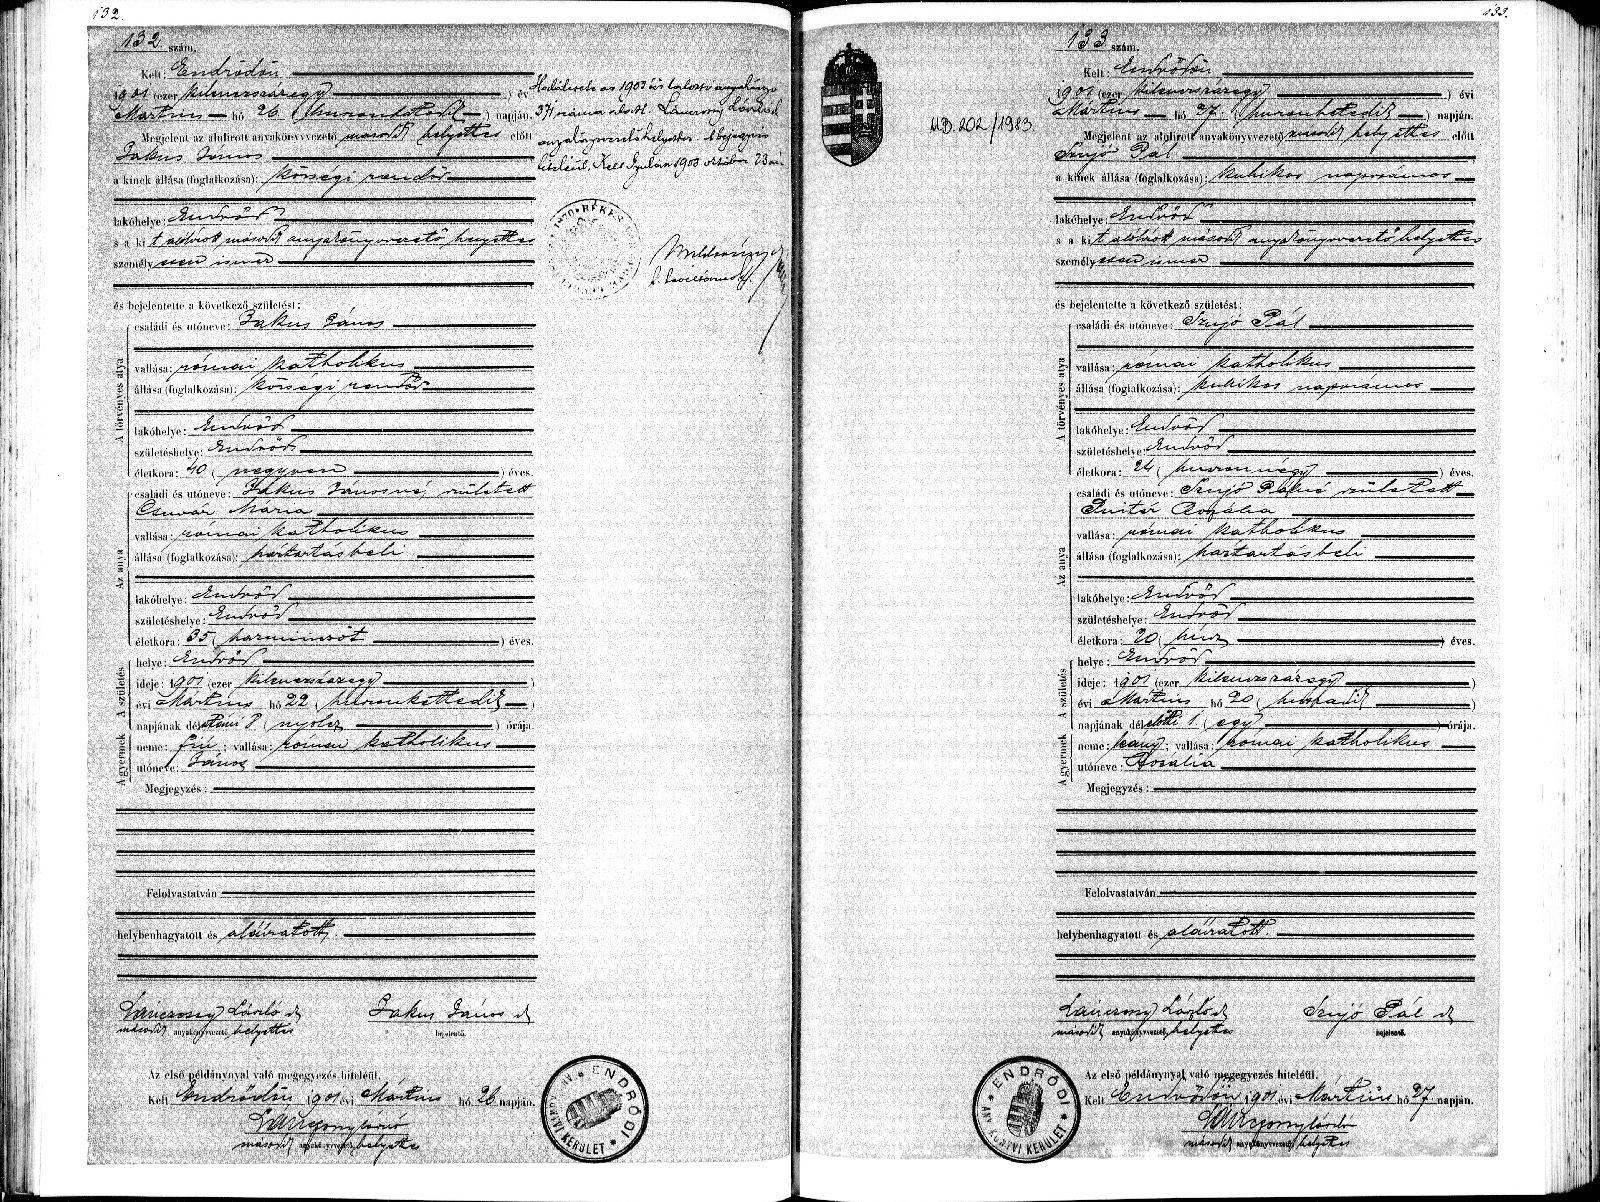 132.
132. szám.
Kelt: Endrődön
1901 (ezer kilenczszázegy) évi
Mártius hó 26. (huszonhatodik) napján.
Megjelent az alulirott anyakönyvvezető másodh helyettes előtt
Jakus János
a kinek állása (foglalkozása): községi rendőr
lakóhelye: Endrőd
s a kit alólirott másodh anyakönyvvezető helyettes
személyesen ismer
és bejelentette a következő születést:
A törvényes atya
családi és utóneve: Jakus János
vallása: római katholikus
állása (foglalkozása): községi rendőr
lakóhelye: Endrőd
születéshelye: Endrőd
életkora: 40 (negyven) éves.
Az anya
családi és utóneve: Jakus Jánosné, született
Csuvár Mária
vallása: római katholikus
állása (foglalkozása): háztartásbeli
lakóhelye: Endrőd
születéshelye: Endrőd
életkora: 35 (harminczöt) éves.
A gyermek A születés
helye: Endrőd
ideje: 1901 (ezer kilenczszázegy)
évi Mártius hó 22 (huszonkettedik)
napjának délutáni 8 (nyolcz) órája.
neme: fiu; vallása: római katholikus
utóneve: János
Megjegyzés:
Felolvastatván
helybenhagyatott és aláiratott.
Lánczony László
Jakus János
másodh anyakönyvvezető helyettes
bejelentő.
Az első példánynyal való megegyezés hiteléül.
Kelt Endrődön 1901 évi Mártius hó 26 napján.
Lánczony László
másodh anyakönyvvezető helyettes
Halálozás az 1903 évi
371 száma alatt. Lánczony László
anyakönyvvezető helyettes. A bejegyzés
hiteléül. Kelt Gyulán 1903 október 23-án
BÉKÉS
ENDRŐDI
ANYAKÖNYVI KERÜLET
133.
133 szám.
M.B. 202/1983.
Kelt: Endrődön
1901 (ezer kilenczszázegy) évi
Mártius hó 27. (huszonhetedik) napján.
Megjelent az alulirott anyakönyvvezető másodh helyettes előtt
Szujó Pál
a kinek állása (foglalkozása): kubikos napszámos
lakóhelye: Endrőd
s a kit alólirott másodh anyakönyvvezető helyettes
személyesen ismer
és bejelentette a következő születést:
A törvényes atya
családi és utóneve: Szujó Pál
vallása: római katholikus
állása (foglalkozása): kubikos napszámos
lakóhelye: Endrőd
születéshelye: Endrőd
életkora: 24 (huszonnégy) éves.
Az anya
családi és utóneve: Szujó Pálné született
Rozália
vallása: római katholikus
állása (foglalkozása): háztartásbeli
lakóhelye: Endrőd
születéshelye: Endrőd
életkora: 20 (husz) éves.
A gyermek A születés
helye: Endrőd
ideje: 1901 (ezer kilenczszázegy)
évi Mártius hó 20 (huszadik)
napjának délelőtti 1 (egy) órája.
neme: leány; vallása: római katholikus
utóneve: Rozália
Megjegyzés:
Felolvastatván
helybenhagyatott és aláiratott.
Lánczony László
Szujó Pál
másodh anyakönyvvezető helyettes
bejelentő.
Az első példánynyal való megegyezés hiteléül.
Kelt Endrődön 1901 évi Mártius hó 27. napján.
Lánczony László
másodh anyakönyvvezető helyettes
ENDRŐDI
ANYAKÖNYVI KERÜLET